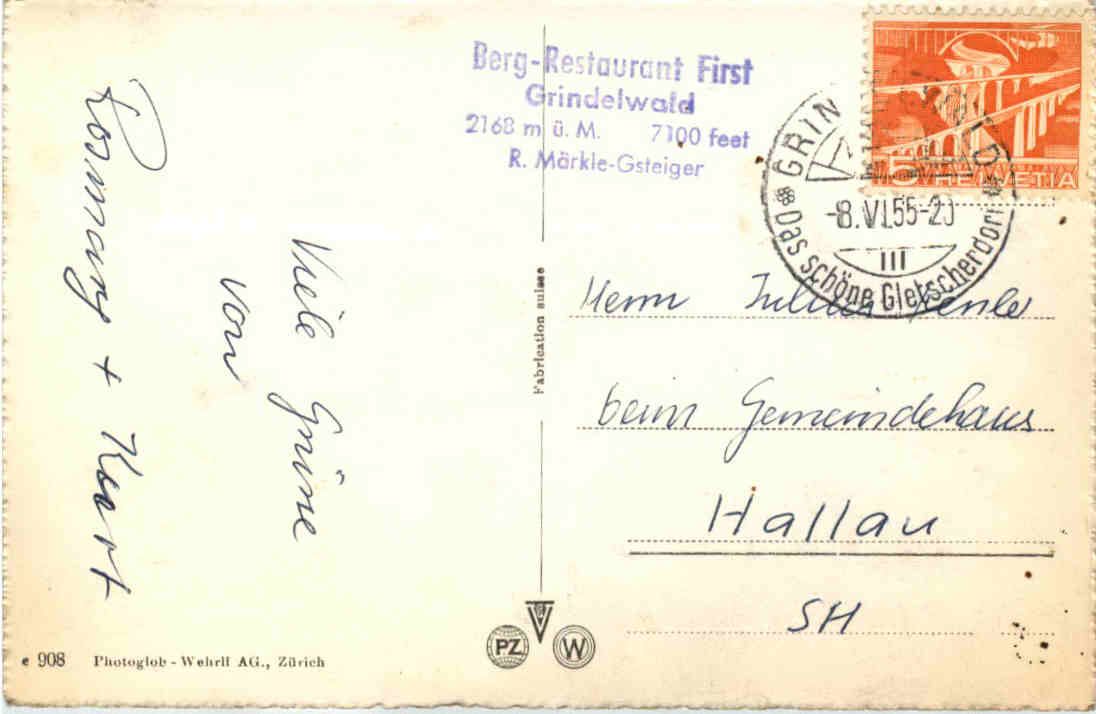 Berg-Restaurant First
Grindelwald
2168 m ü. M. 7100 feet
R. Märkle-Gsteiger
5 HELVETIA
GRIN D
-8.VI.55-20
III
Das schöne Gletscherdorf
Viele Grüsse
von
Romany + Kurt
Fabrication suisse
Herrn Julius
beim Gemeindehaus
Hallau
SH
PZ
W
e 908 Photoglob-Wehrli AG., Zürich